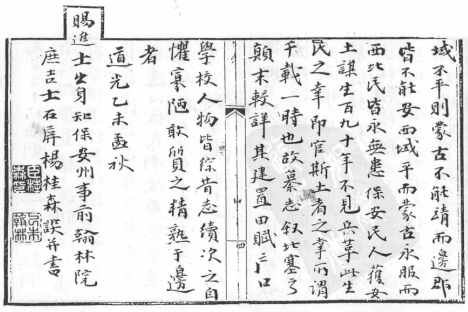 域不平則蒙古不能靖而邊郡
皆不能安西域平而蒙古永服而
西北民皆永無患保安民人獲安
土謀生百九十年不見兵革此生
民之幸即官斯土者之幸所謂
千載一時也故纂志叙北塞之
顛末較詳其建置田賦戶口
學校人物皆綜昔志續次之自
懼寡陋敢質之精熟于邊
者
道光乙未孟秋
賜進士出身知保安州事前翰林院
庶吉士石屏楊桂森譔并書
四